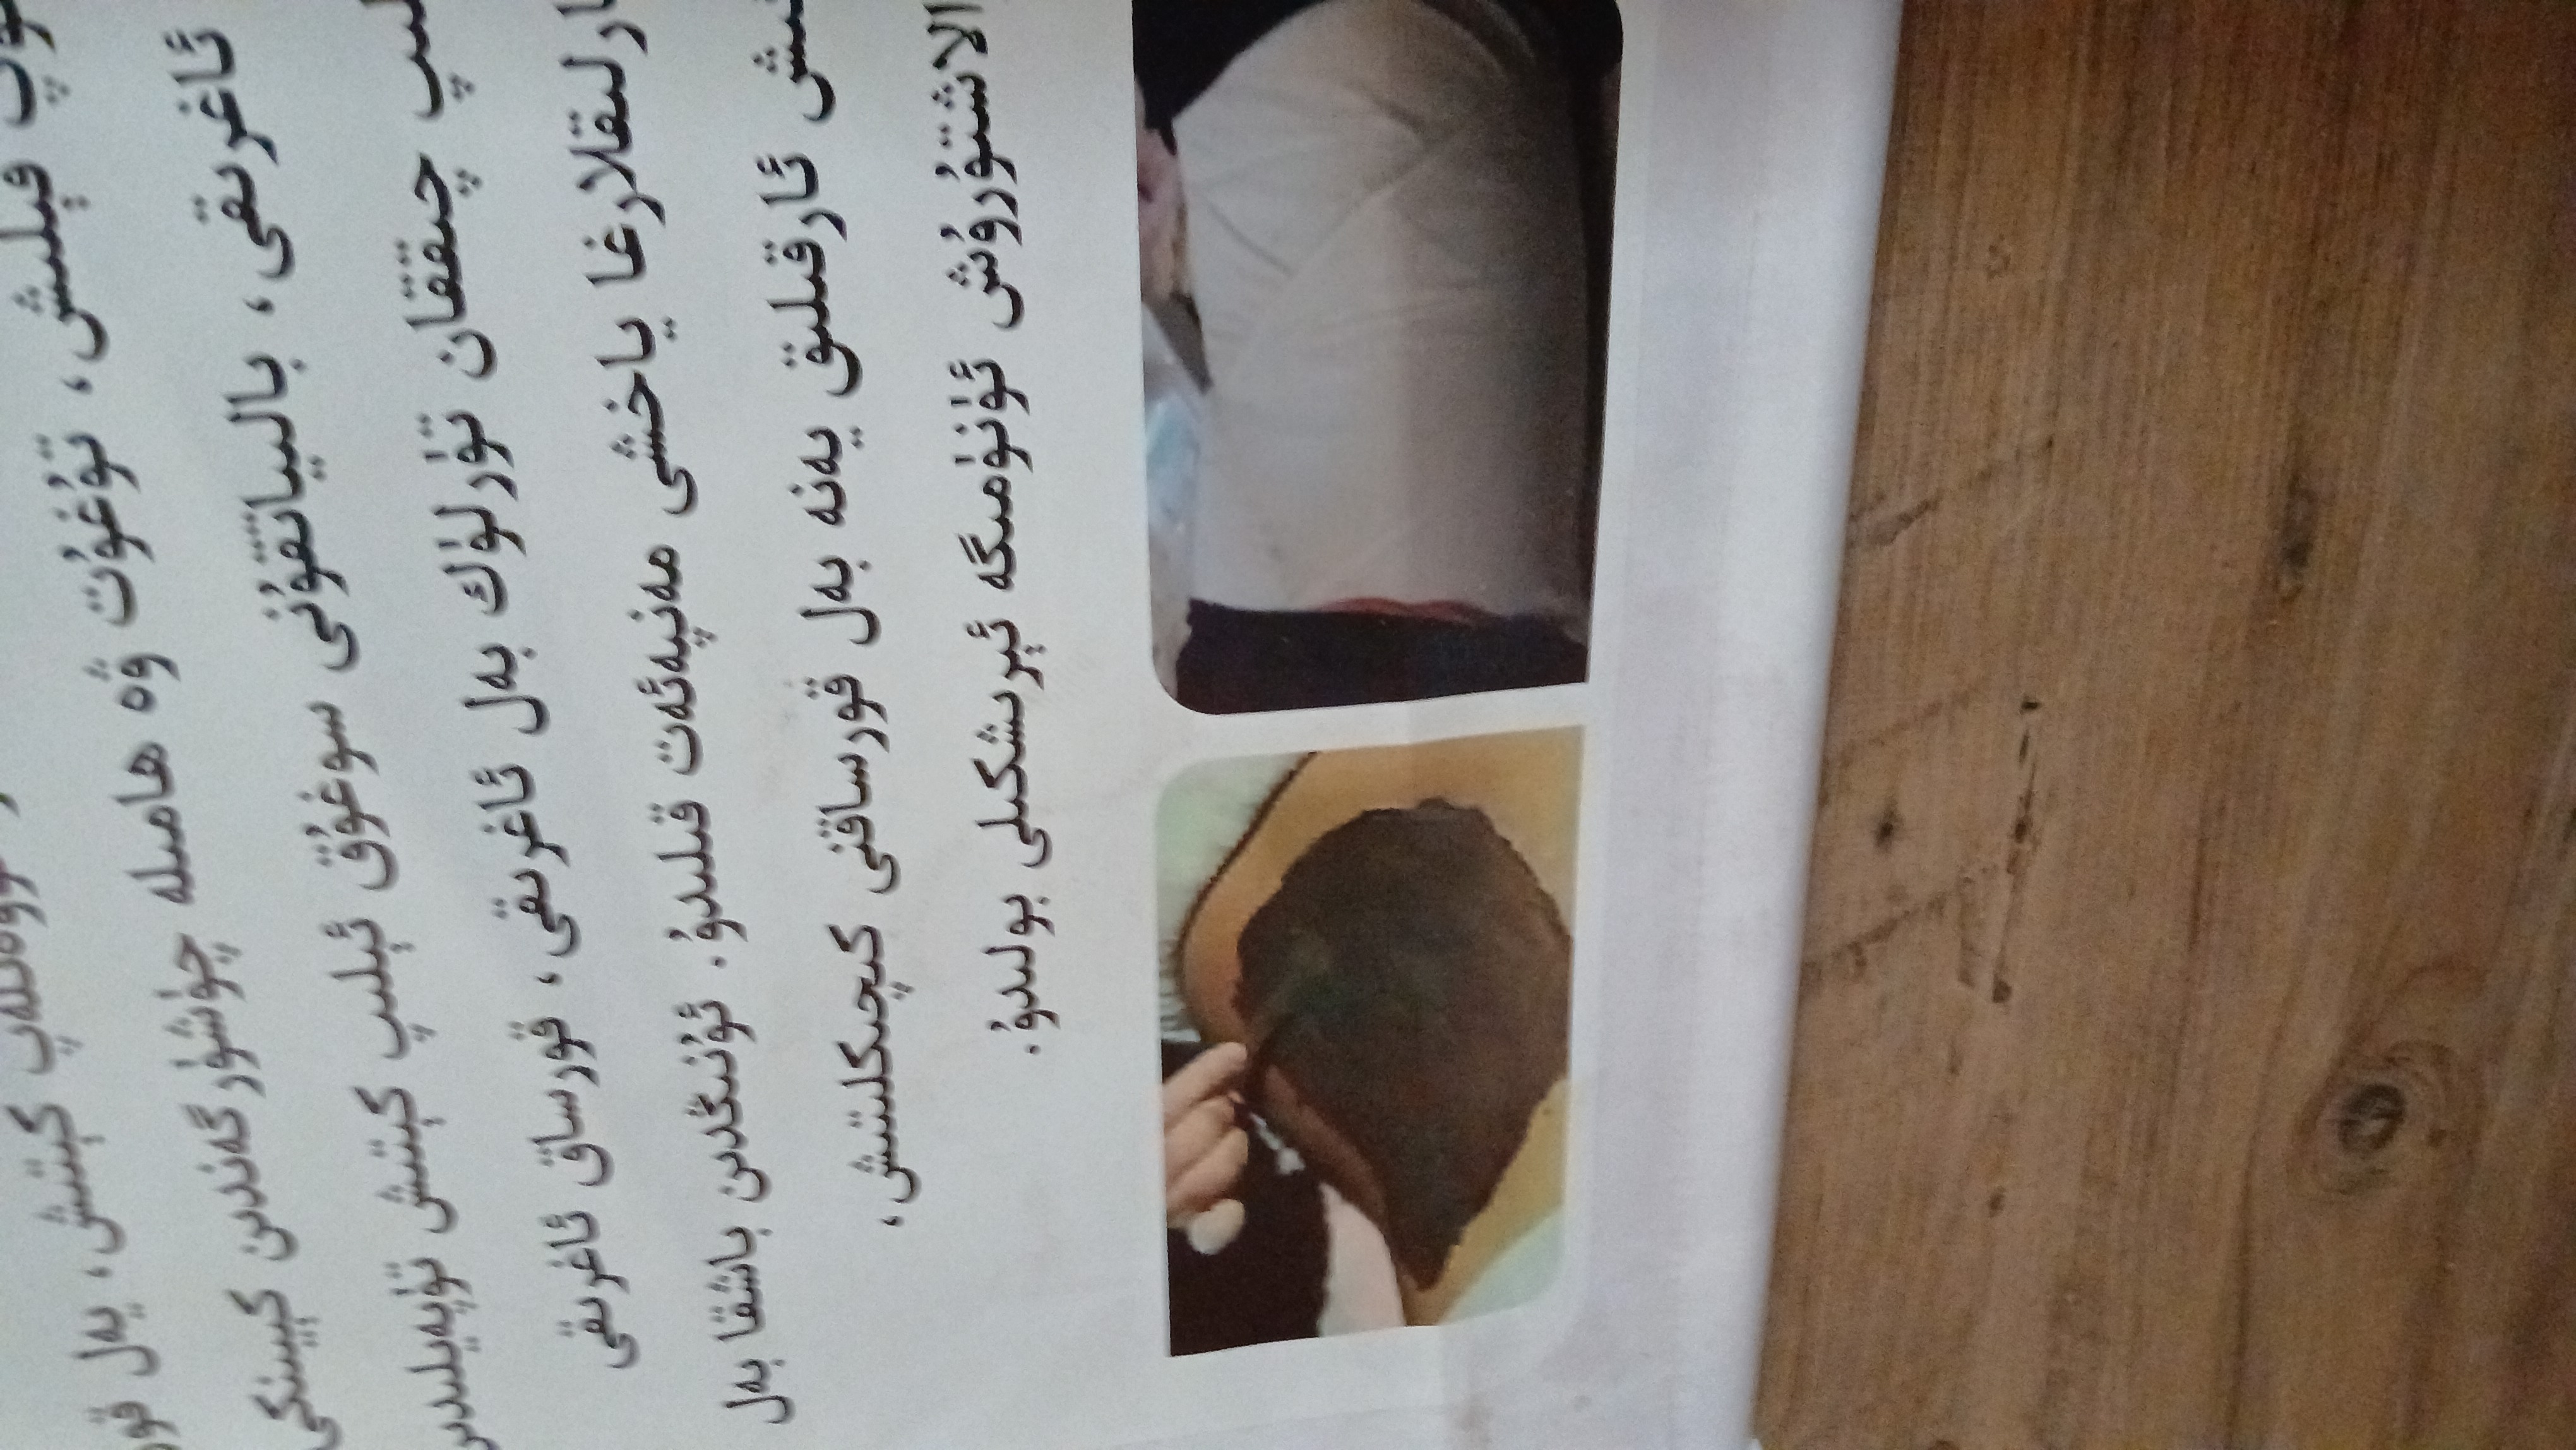 كېتىش، يەل
قېلىش، تۇغۇت ۋە ھامىلە چۈشۈرگەندىن كېيىنكى
ئاغرىقى، بالىياتقۇنى سوغۇق ئېلىپ كېتىش تۈپەيلىدىن
چىققان تۈرلۈك بەل ئاغرىقى، قورساق ئاغرىقى
ارلىقلارغا ياخشى مەنپەئەت قىلىدۇ. ئۇنىڭدىن باشقا بەل
ئارقىلىق يەنە بەل قورساقنى كىچىكلىتىش،
الاشتۇرۇش ئۈنۈمىگە ئېرىشكىلى بولىدۇ.